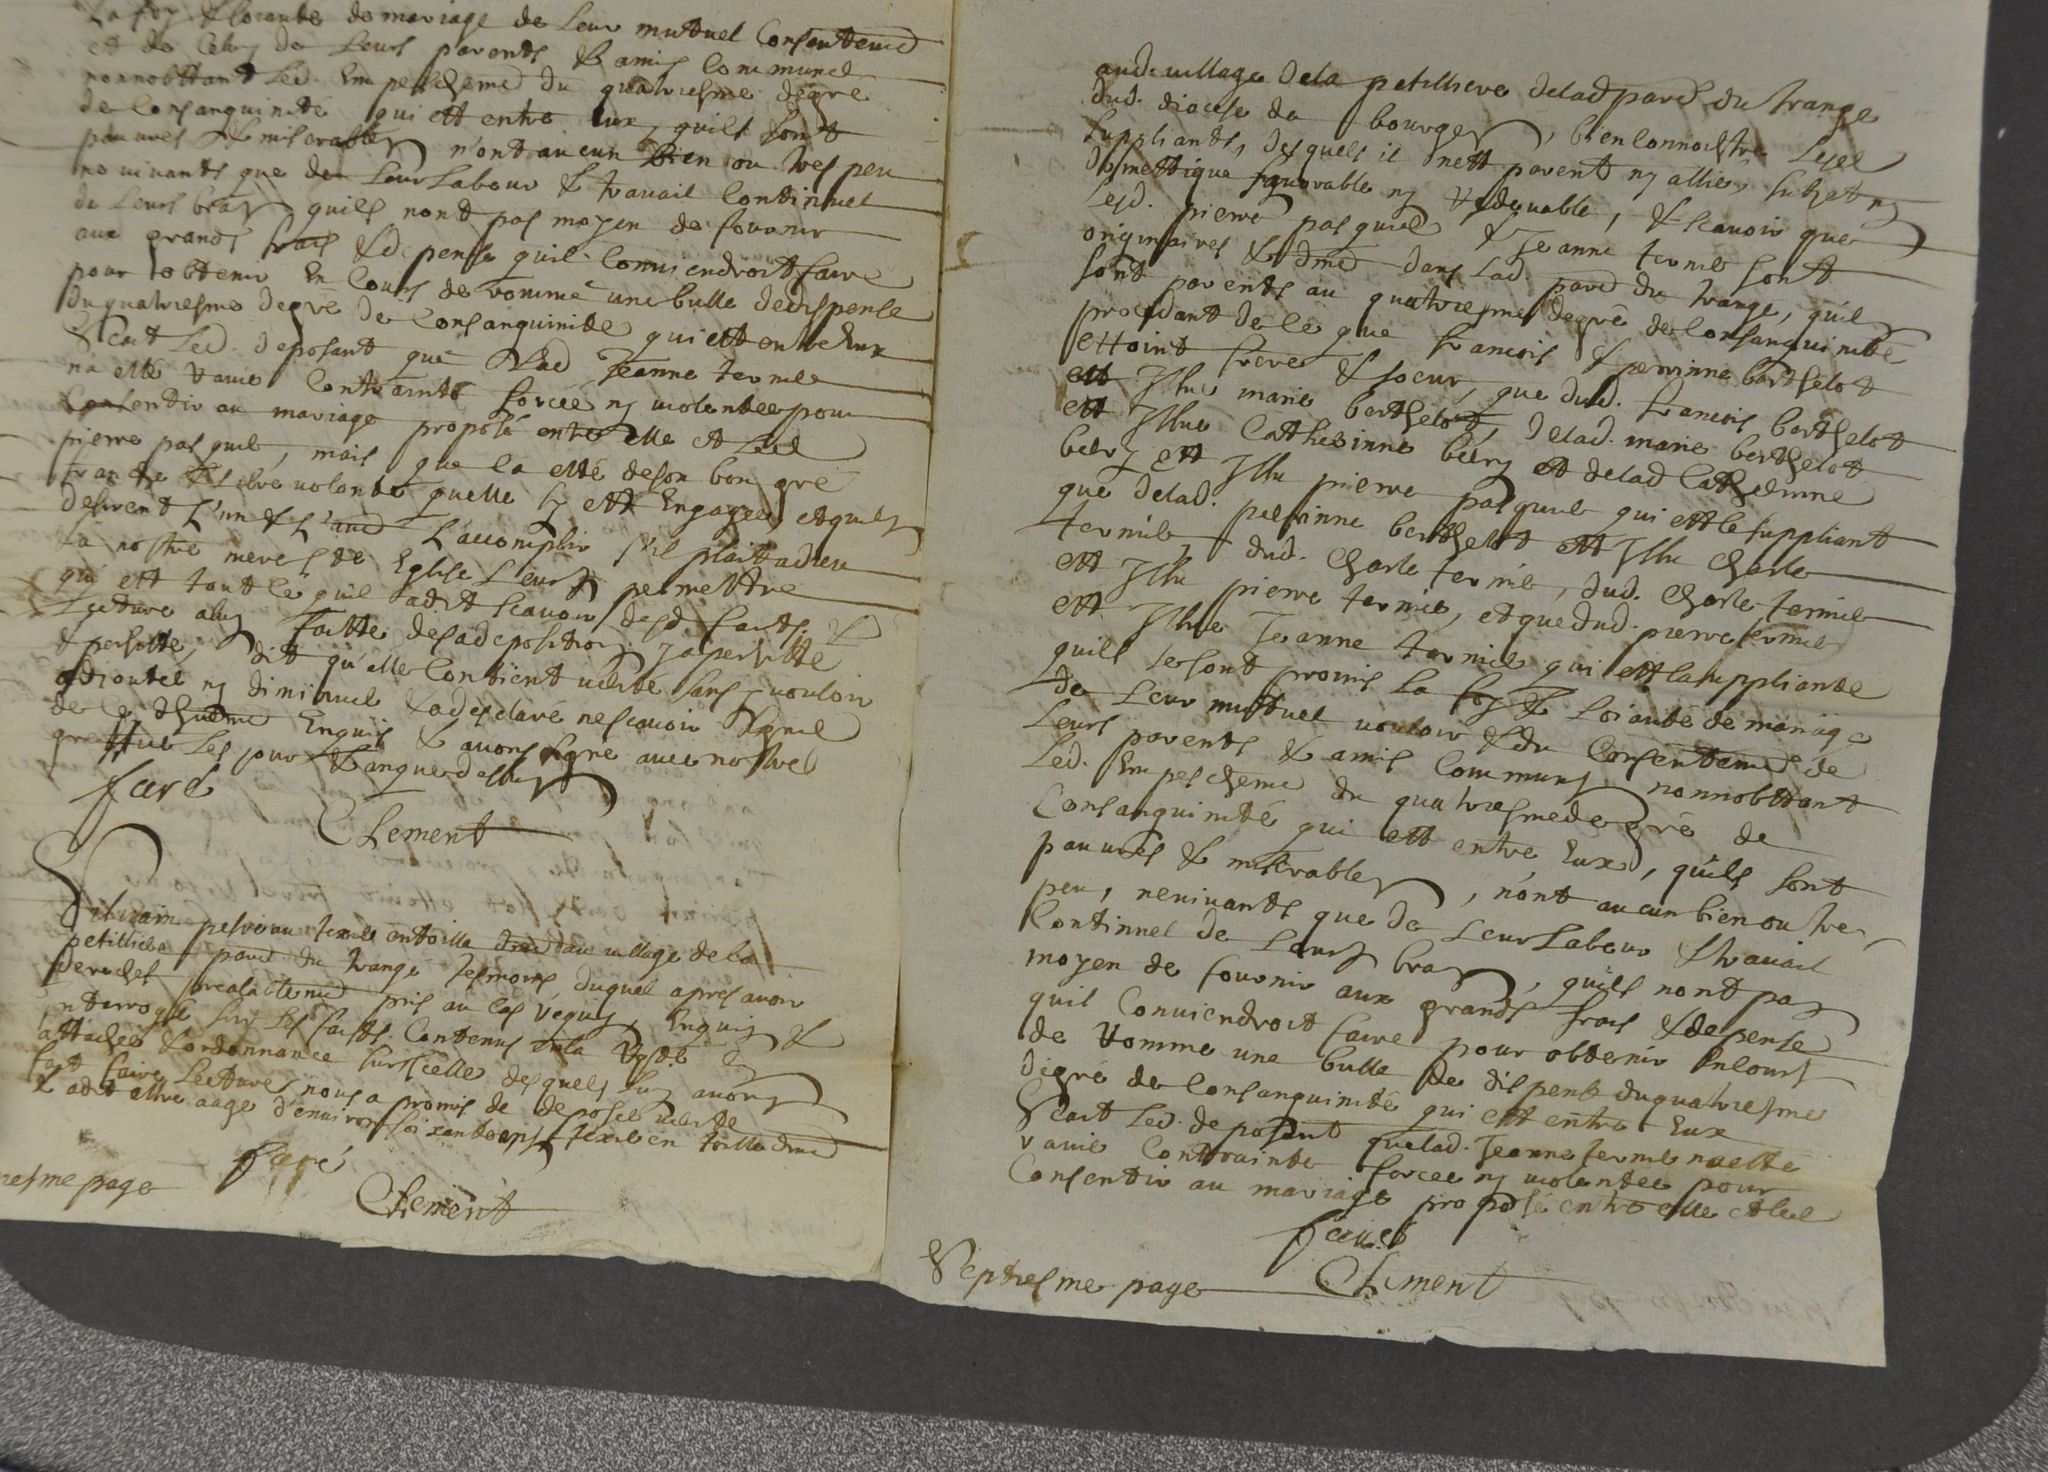 La foy & loiauté de mariage de Leur mutuel Consenteme͞t
et de Celuy de Leurs parents & amis Communs
nonnobstant Led. Empescheme͞t du quatriesme degré
de Consanguinité qui est entre Eux, quils sont
pauvres & miserables n'ont aucun bien ou tres peu
ne vivants que de Leur Labour & travail Continuel
de Leurs bras, quils nont pas moyen de fournir
aux grands frais & depense quil Conviendroit faire
pour obtenir En Cour de romme une bulle de dispense
du quatriesme degré de Consanguinité qui est entre Eux
Scait Led. deposant que Lad Jeanne termie
na esté ravie Contrainte forcée ny violentée pour
Consentir au mariage proposé entre elle et Led
pierre pasquie, mais que ca esté de son bon gré
franche & libre volonté quelle sy est Engagée et quils
desirent L'un & L'autre L'accomplir s'il plait a dieu
La nostre mere Ste Eglise Leurs permettre
qui est tout Ce quil a dit scavoir desd. faits, &
Lecture a luy faitte de sa deposition y a persisté
& persiste, dit qu'elle Contient verité sans y vouloir
adjouter ny diminuer & a desclaré ne scavoir signer
de ce Enquis & avons signé avec nostre
greffier Les jour & an que dessus
faré
Clement
Silvain texier en toille dem͞t au village de la
petilliere paro͞e du trangé tesmoins, duquel apres avoir
pris au cas requis, Enquis &
interrogé sur Les faits Contenus en la Req͞te cy
attachée & ordonnance sur Icelle desquels luy avons
fait faire Lecture, nous a promis de deposer verité
& a dit estre aagé d'environ soixante ans texier en toille dem͞t
faré
Clement
iesme page
aud. village de la petilliere de lad paro͞e du trange
dud. diocese de bourges, bien connoistre Lesd
suppliants, desquels il n'est parent ny allié, subjet ny
domestique favorable ny redevable, & scavoir que
Lesd. pierre pasquié & Jeanne termie sont
originaires & dem͞t dans Lad. paro͞e du trangé, quils
sont parents au quatriesme degré de Consanguinité
procedant de ce que francois & perrinne berthelot
estoint frere & soeur, que dud. francois berthelot
est Issue marie berthelot, de lad. marie berthelot
est Issue Catherinne bery et de lad Catherinne
bery est Issu pierre pasquié qui est le suppliant
que de lad. perrinne berthelot est Issu Charle
termie dud. Charle termie, dud. Charle termie
est Issu pierre termie, et que dud. pierre termie
est Issue Jeanne termie qui est la suppliante
quils se sont promis La foy & loiauté de mariage
de Leur mutuel vouloir & du Consenteme͞t de
Leurs parents & amis Communs nonnobstant
Led. Empescheme͞t du quatriesme degré de
Consanguinité qui est entre Eux, quils sont
pauvres & miserables, n'ont aucun bien ou tres
peu, ne vivants que de Leur Labour & travail
Continuel de Leurs bras, quils nont pas
moyen de fournir aux grands frais & depense
quil Conviendroit faire pour obtenir En Cour
de Romme une bulle de dispense du quatriesme
degré de Consanguinité qui est entre Eux
Scait Led. deposant que lad. Jeanne termie na esté
ravie Contrainte forcée ny violentée pour
Consentir au mariage proposé entre elle et led
faré
Septiesme page Clement